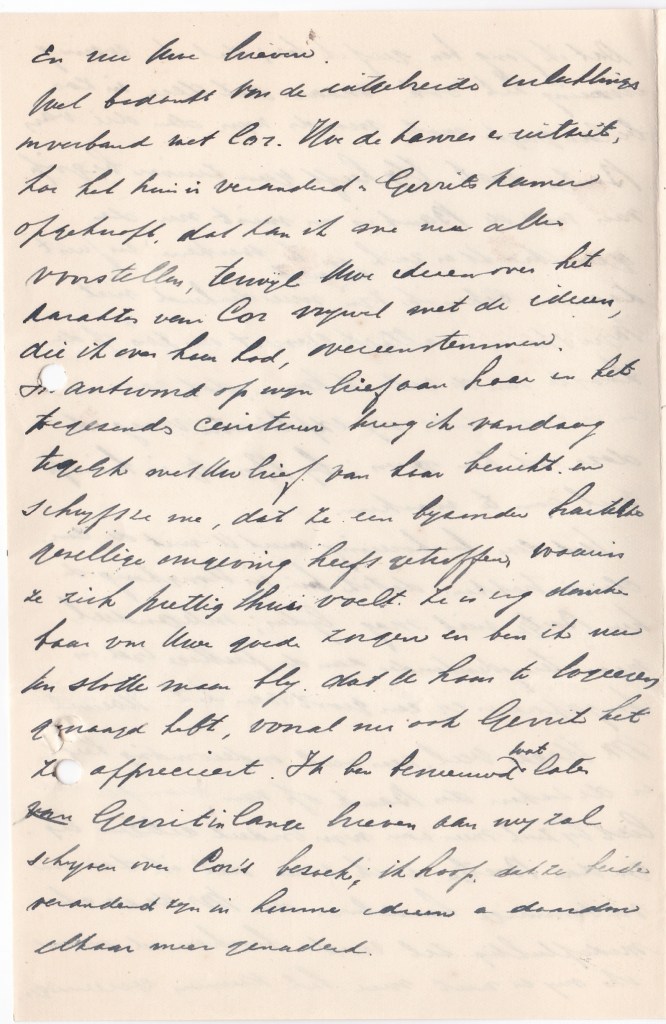 En nu Uwe brieven.
Wel bedankt voor de uitgebreide inlichtings
inverband met Cor. Hoe de kamer er uitziet,
hoe het huis is veranderd en Gerrits kamer
opgeknapt, dat kan ik me nu alles
voorstellen, terwijl Uwe ideeen over het
karakter van Cor vrijwel met de ideeen,
die ik over haar had, overeenstemmen.
In antwoord op mijn brief aan haar en het
toegezonden ceintuur kreeg ik vandaag
tegelijk met Uw brief van haar bericht en
schrijft ze me, dat ze een byzonder hartelijke
gezellige omgeving heeft getroffen, waarin
ze zich prettig thuis voelt. Ze is erg dank
baar voor Uwe goede zorgen en ben ik nu
ten slotte maar bly dat U haar te logeeren
gevraagd hebt, vooral nu ook Gerrit het
zo apprecieert. Ik ben benieuwd wat later
Gerrit in lange brieven aan my zal
schryven over Cor's bezoek; ik hoop dat ze beide
veranderd zyn in hunne ideeen en daardoor
elkaar meer genaderd.